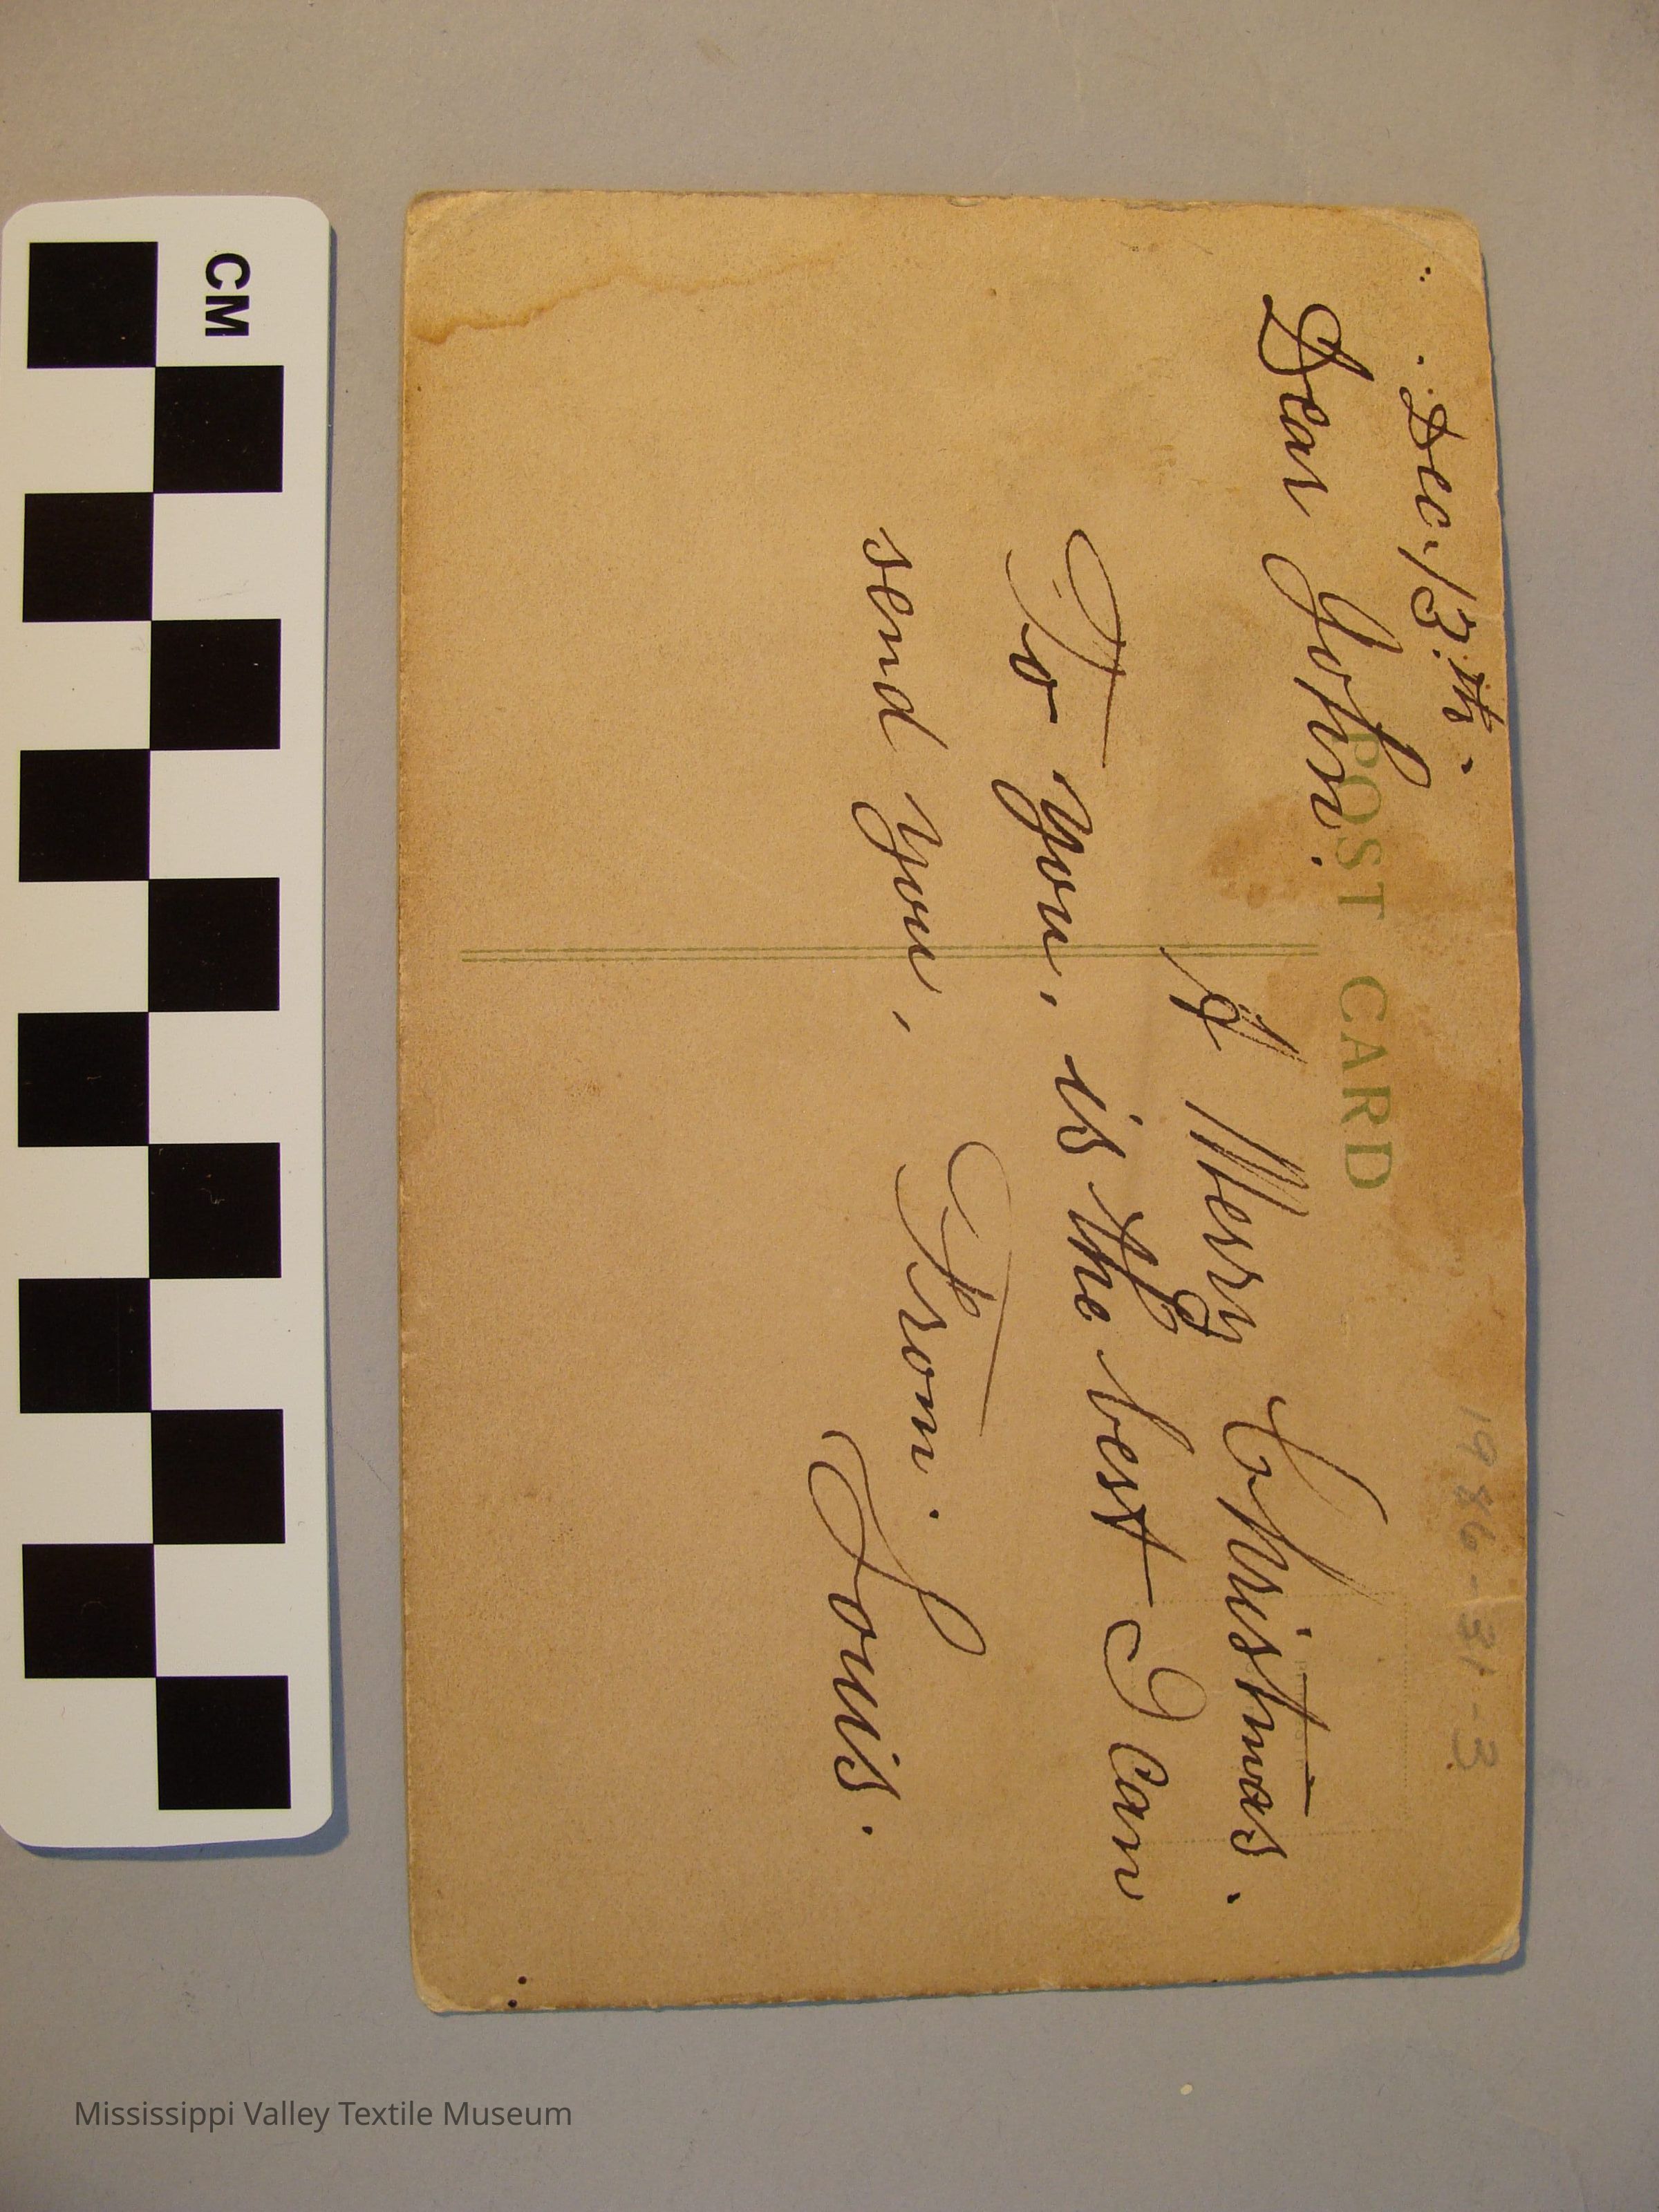 Dec. 13th.
1986-31-3
POST CARD
Dear John.
A Merry Christmas.
To you, is the best I can
send you,
From.
Louis.
CM
Mississippi Valley Textile Museum